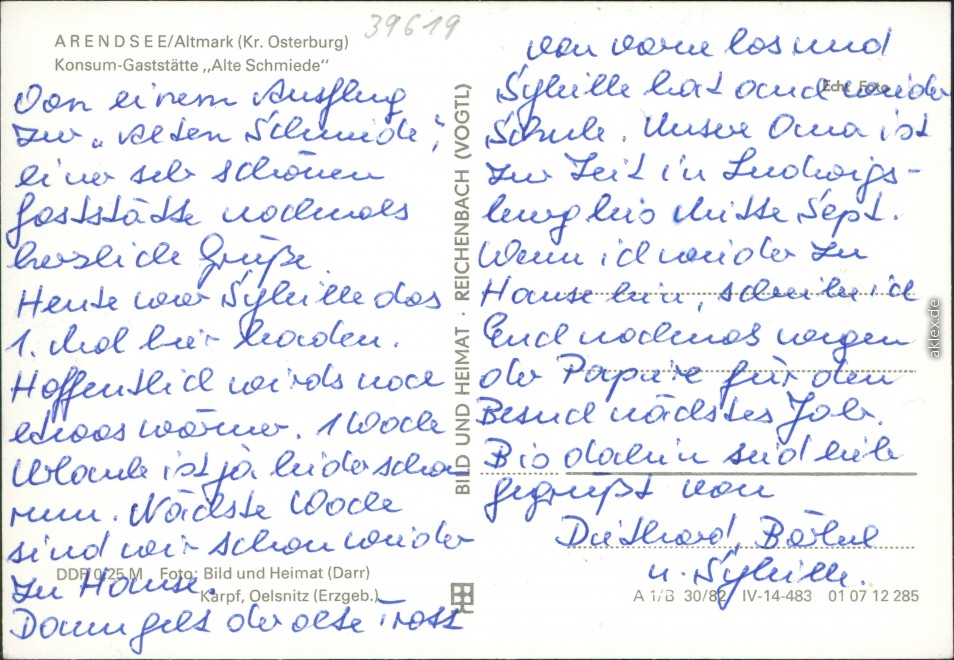 39619
ARENDSEE/Altmark (Kr. Osterburg)
Konsum-Gaststätte „Alte Schmiede“
Von einem Ausflug
zur „Alten Schmiede“,
einer sehr schönen
Gaststätte nochmals
herzliche Grüße.
Heute war Sybille das
1. Mal hier baden.
Hoffentlich wirds noch
etwas wärmer. 1 Woche
Urlaub ist ja leider schon
rum. Nächste Woche
sind wir schon wieder
zu Hause.
Dann geht der alte Trott
DDR 0,25 M Foto: Bild und Heimat (Darr)
Karpf, Oelsnitz (Erzgeb.)
BILD UND HEIMAT · REICHENBACH (VOGTL)
von vorne los und
Echt Foto
Sybille hat auch wieder
Schule. Unsere Oma ist
zur Zeit in Ludwigs-
burg bis Mitte Sept.
Wenn ich wieder zu
Hause bin, schreib ich
Euch nochmals wegen
der Papiere für den
Besuch nächstes Jahr.
Bis dahin seid lieb
gegrüßt von
Diethard, Bärbel
u. Sybille.
A 1/B 30/82 IV-14-483 01 07 12 285
aklex.de